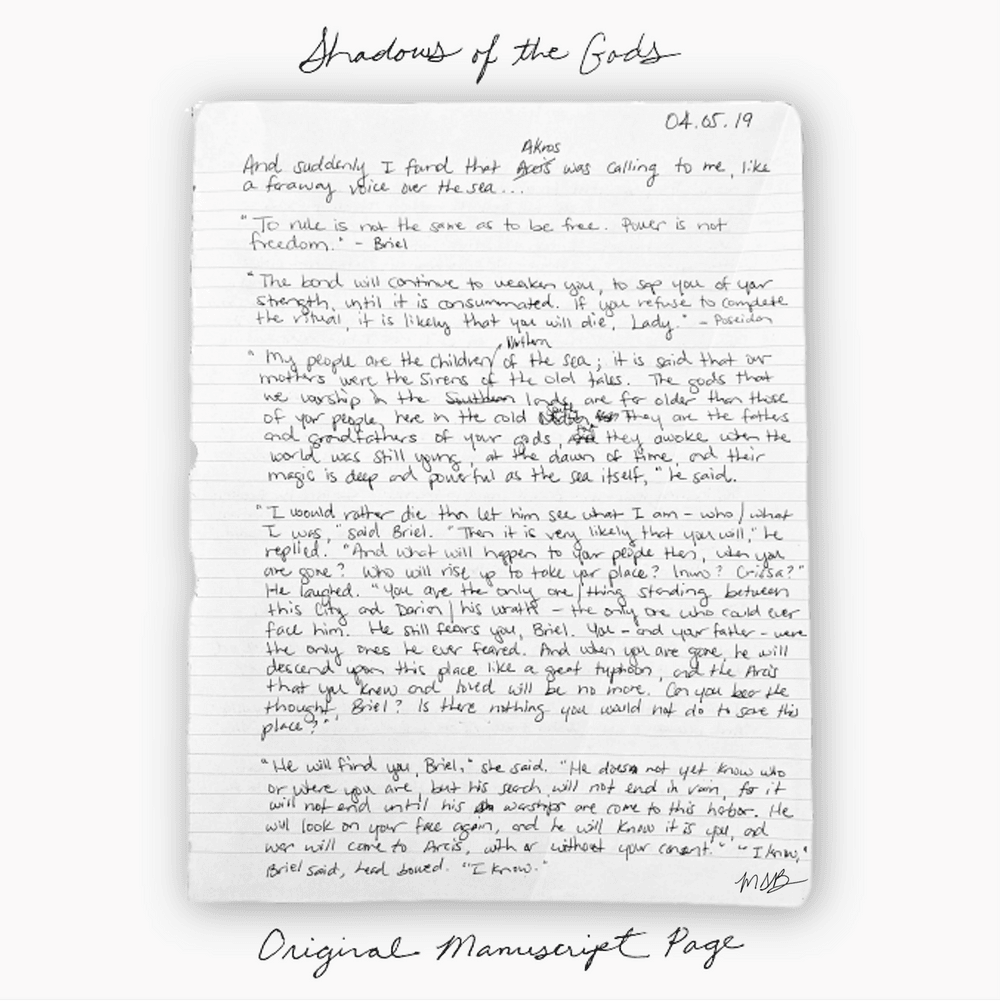 Shadows of the Gods
04.05.19
Akros
And suddenly I found that Arcis was calling to me, like
a faraway voice over the sea...
"To rule is not the same as to be free. Power is not
freedom." - Briel
"The bond will continue to weaken you, to sap you of your
strength, until it is consummated. If you refuse to complete
the ritual, it is likely that you will die, Lady." - Poseidon
Northern
"My people are the children of the sea; it is said that our
mothers were the Sirens of the old tales. The gods that
we worship in the Southern lands are far older than those
of your people, here in the cold South. They are the fathers
and grandfathers of your gods, they awoke when the
world was still young, at the dawn of time, and their
magic is deep and powerful as the sea itself," he said.
"I would rather die than let him see what I am - who/what
I was," said Briel. "Then it is very likely that you will," he
replied. "And what will happen to your people then, when you
are gone? Who will rise up to take your place? Crissa?"
He laughed. "You are the only one/thing standing between
this City and Darion/his wrath - the only one who could ever
face him. He still fears you, Briel. You - and your father - were
the only ones he ever feared. And when you are gone, he will
descend upon this place like a great typhoon, and the Arcis
that you knew and loved will be no more. Can you bear the
thought, Briel? Is there nothing you would not do to save this
place?"
"He will find you, Briel," she said. "He does not yet know who
or where you are, but his search will not end in vain, for it
will not end until his warships are come to this harbor. He
will look on your face again, and he will know it is you, and
war will come to Arcis, with or without your consent." "I know,"
Briel said, head bowed. "I know."
MSB
Original Manuscript Page